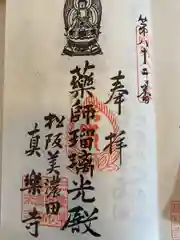 第八十二番
奉拝
薬師瑠璃光殿
松阪美濃田
真樂寺